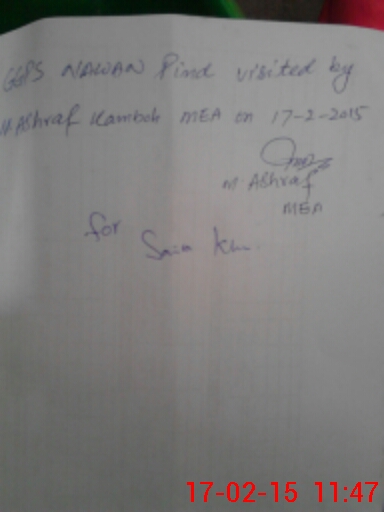 GGPS NAWAN Pind visited by
M Ashraf Kamboh MEA on 17-2-2015
M Ashraf
MEA
for
Saia
17-02-15 11:47